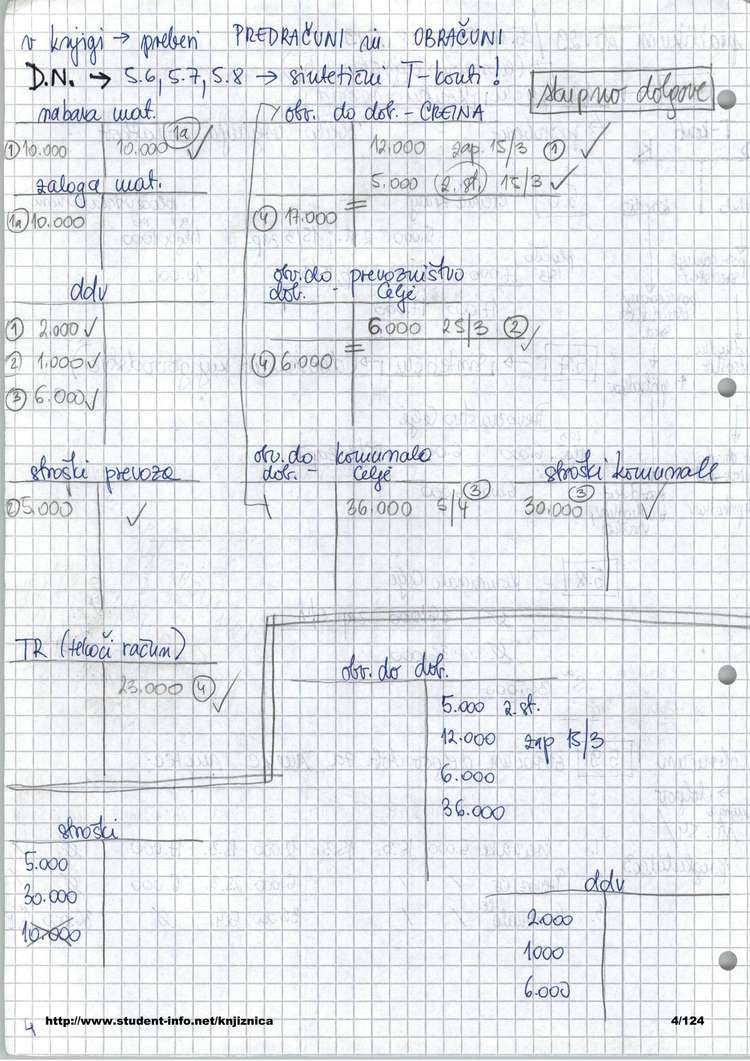 v knjigi → preberi PREDRAČUNI in OBRAČUNI
D.N. → 5.6, 5.7, 5.8 → sintetični T-konti!
skupno dolgove
nabava mat.
① 10.000 10.000 1a ✓
obv. do dob. - CREINA
12.000 zap. 15/3 ① ✓
5.000 (2. st.) 15/3 ✓
④ 17.000
zaloga mat.
1a 10.000
ddv
① 2.000 ✓
② 1.000 ✓
③ 6.000 ✓
obv. do prevozništvo
dob. - Celje
6.000 25/3 ② ✓
④ 6.000
stroški prevoza
② 5.000 ✓
obv. do komunalo
dob. - Celje
36.000 5/4 ③
stroški komunale
30.000 ③ ✓
TR (tekoči račun)
23.000 ④ ✓
obv. do dob.
5.000 2. st.
12.000 zap 15/3
6.000
36.000
stroški
5.000
30.000
10.000
ddv
2.000
1000
6.000
4
http://www.student-info.net/knjiznica
4/124